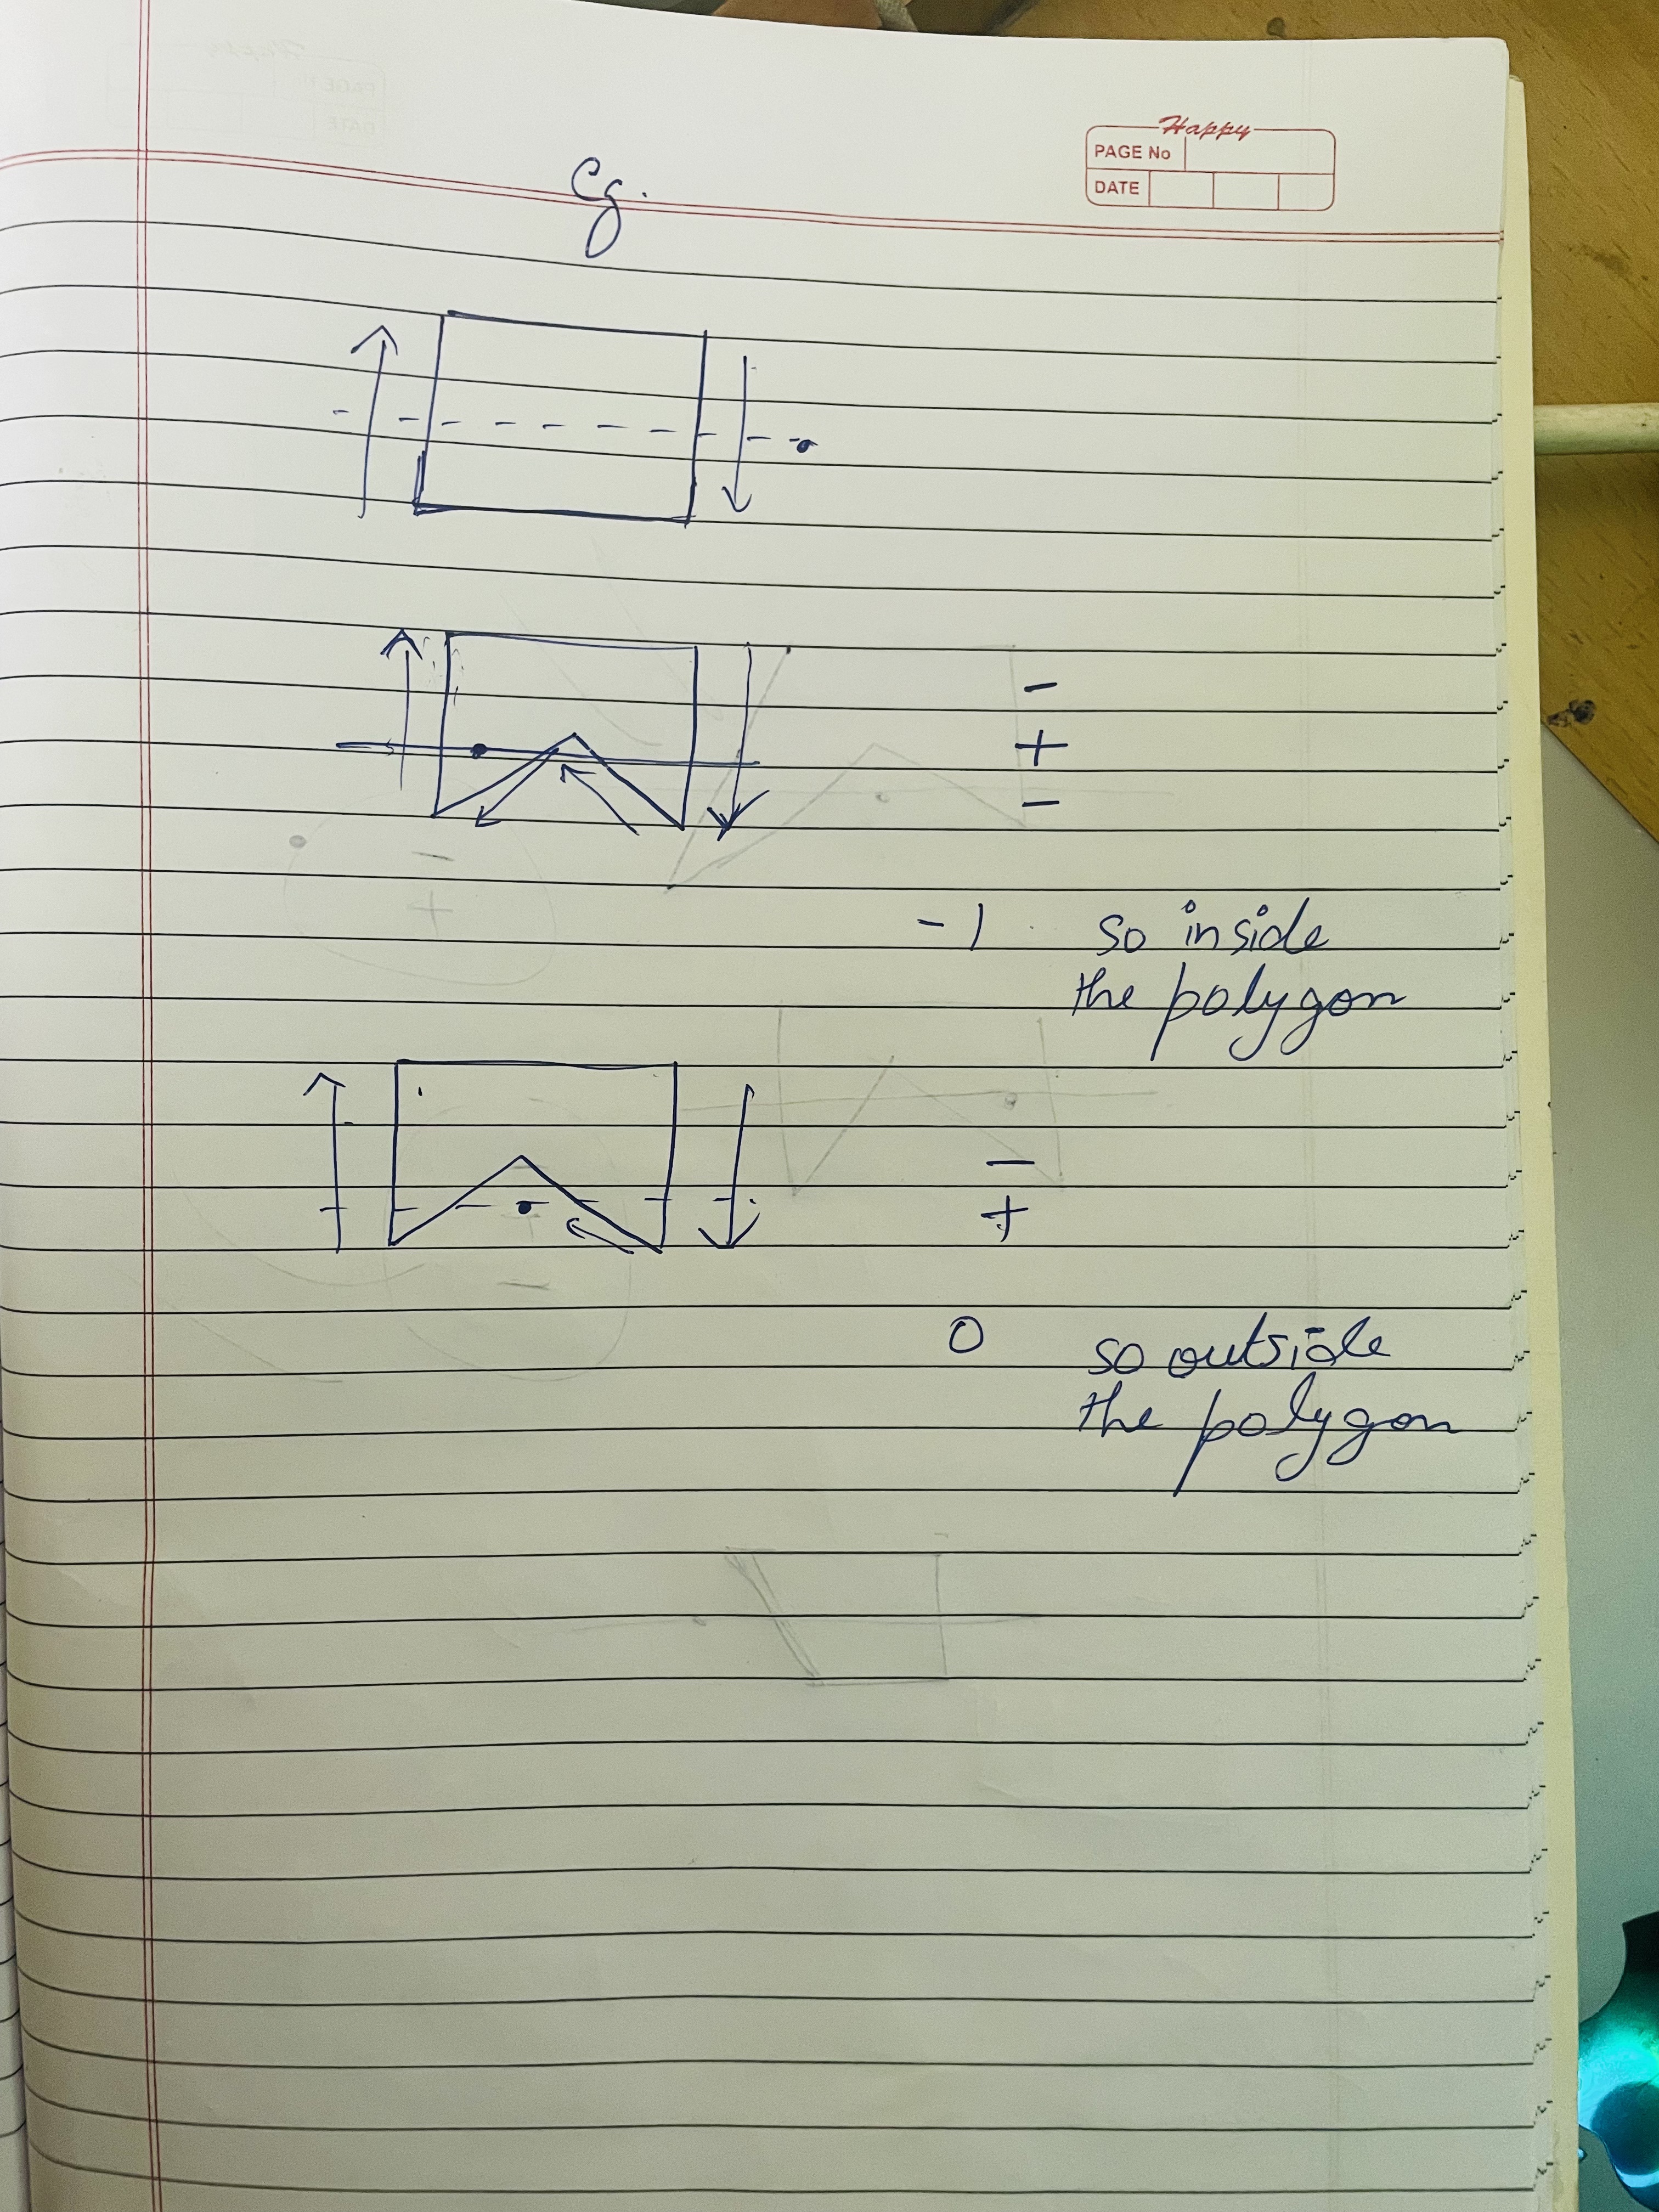 Happy
PAGE No
DATE
eg.
-
+
-
-1 so inside
the polygon
-
+
0 so outside
the polygon